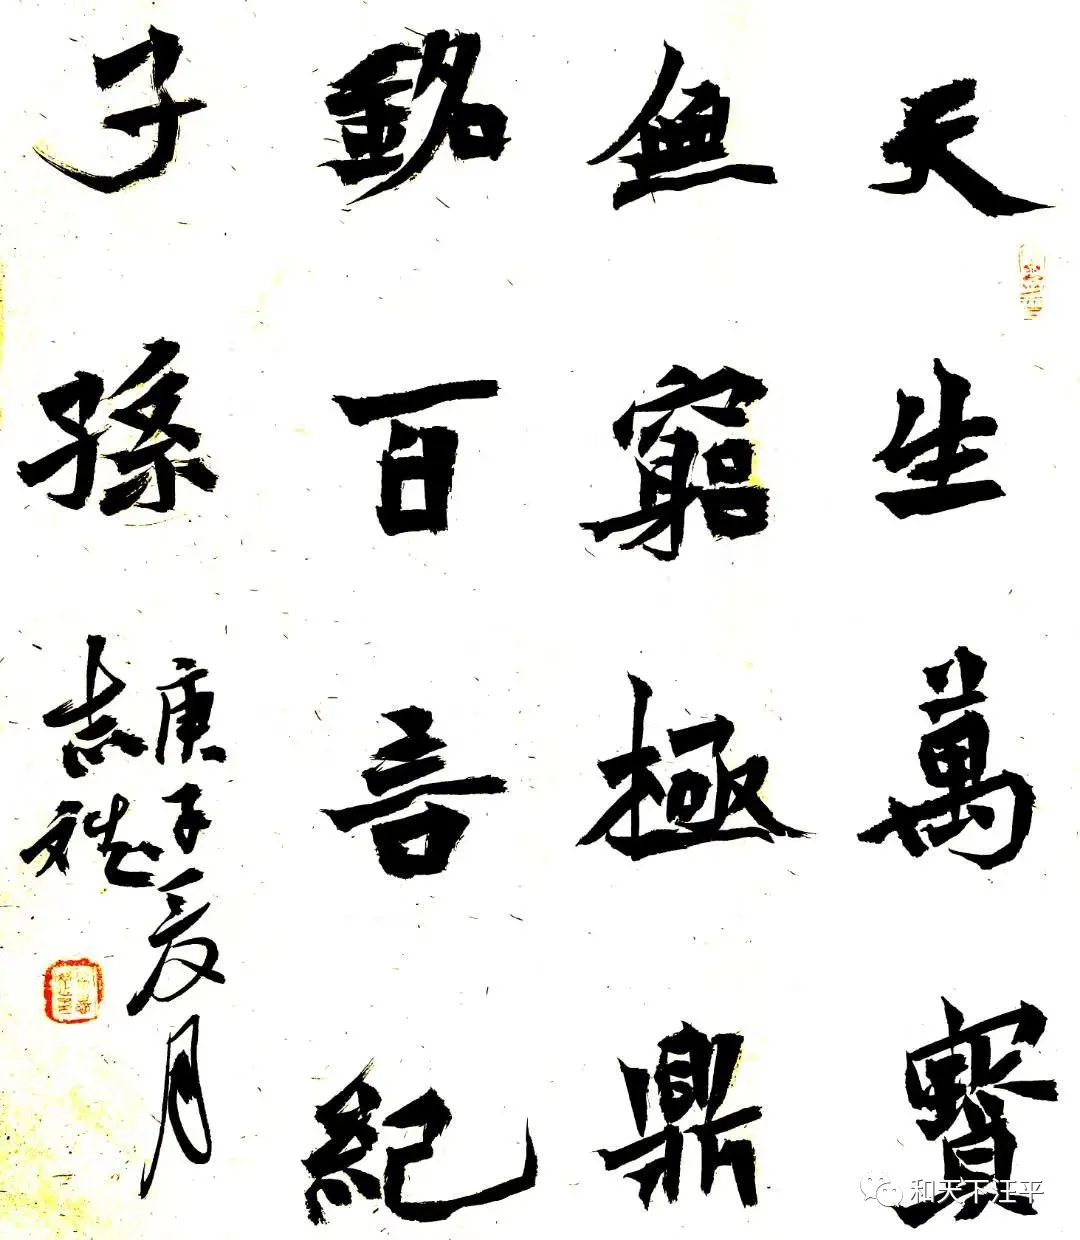 天生萬寶
無窮極鼎
銘百言紀
子孫
庚子夏月
志斌
和天下汪平